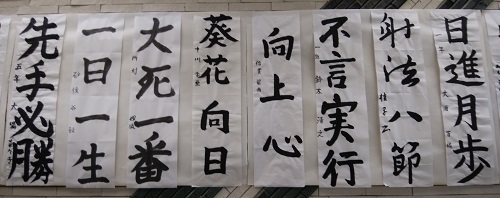 日進月歩
射法八節
不言実行
向上心
葵花向日
大死一番
一日一生
先手必勝
五年